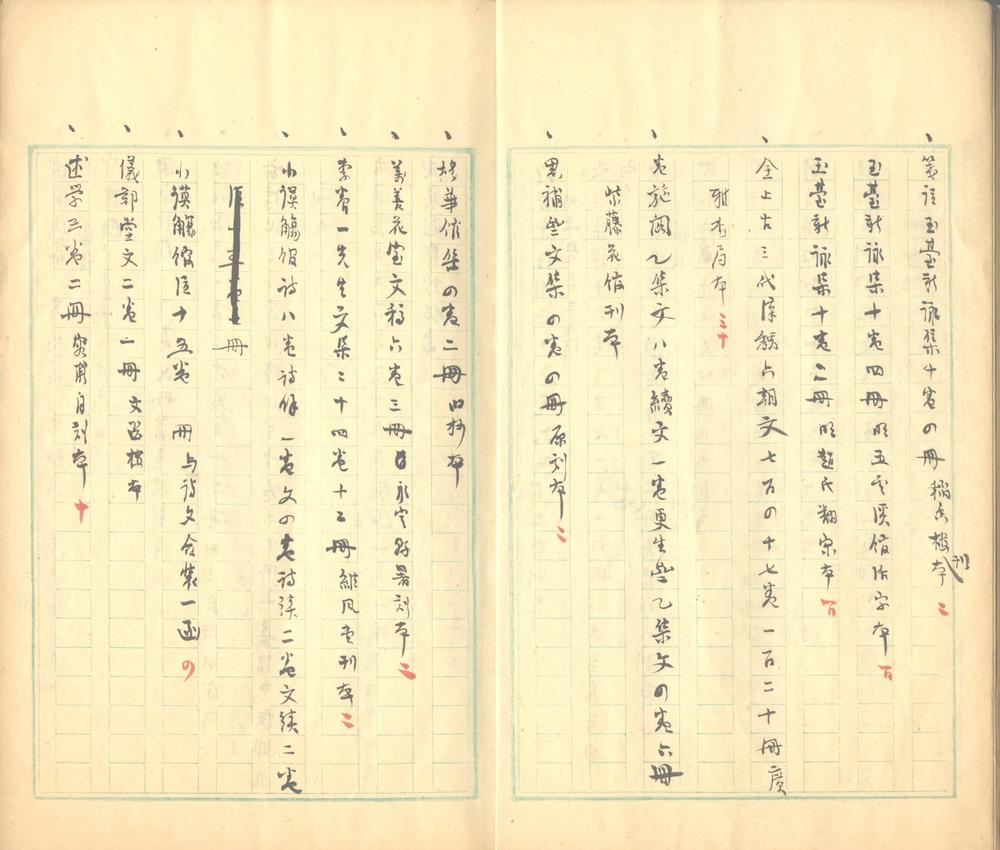 箋註玉臺新詠集十卷四冊 稻香樓刊本 二
玉臺新詠集十卷四冊 明五雲溪館活字本 百
玉臺新詠集十卷二冊 明趙氏翻宋本 百
全上古三代漢魏六朝文七百四十七卷一百二十冊廣
雅書局本 三十
卷施閣乙集文八卷續文一卷更生齋乙集文四卷六冊
紫藤花館刊本
思補齋文集四卷四冊 原刻本 二
華館集四卷二冊 旧抄本
義善花室文稿六卷三冊 永定縣署刻本 二
李養一先生文集二十四卷十二冊 維風堂刊本 二
小謨觴館詩八卷詩餘一卷文四卷詩續二卷文續二卷
冊
小謨觴館 十五卷 冊 与詩文合裝一函 四
儀鄭堂文二卷一冊 文選樓本
述学三卷二冊 容甫自刻本 十